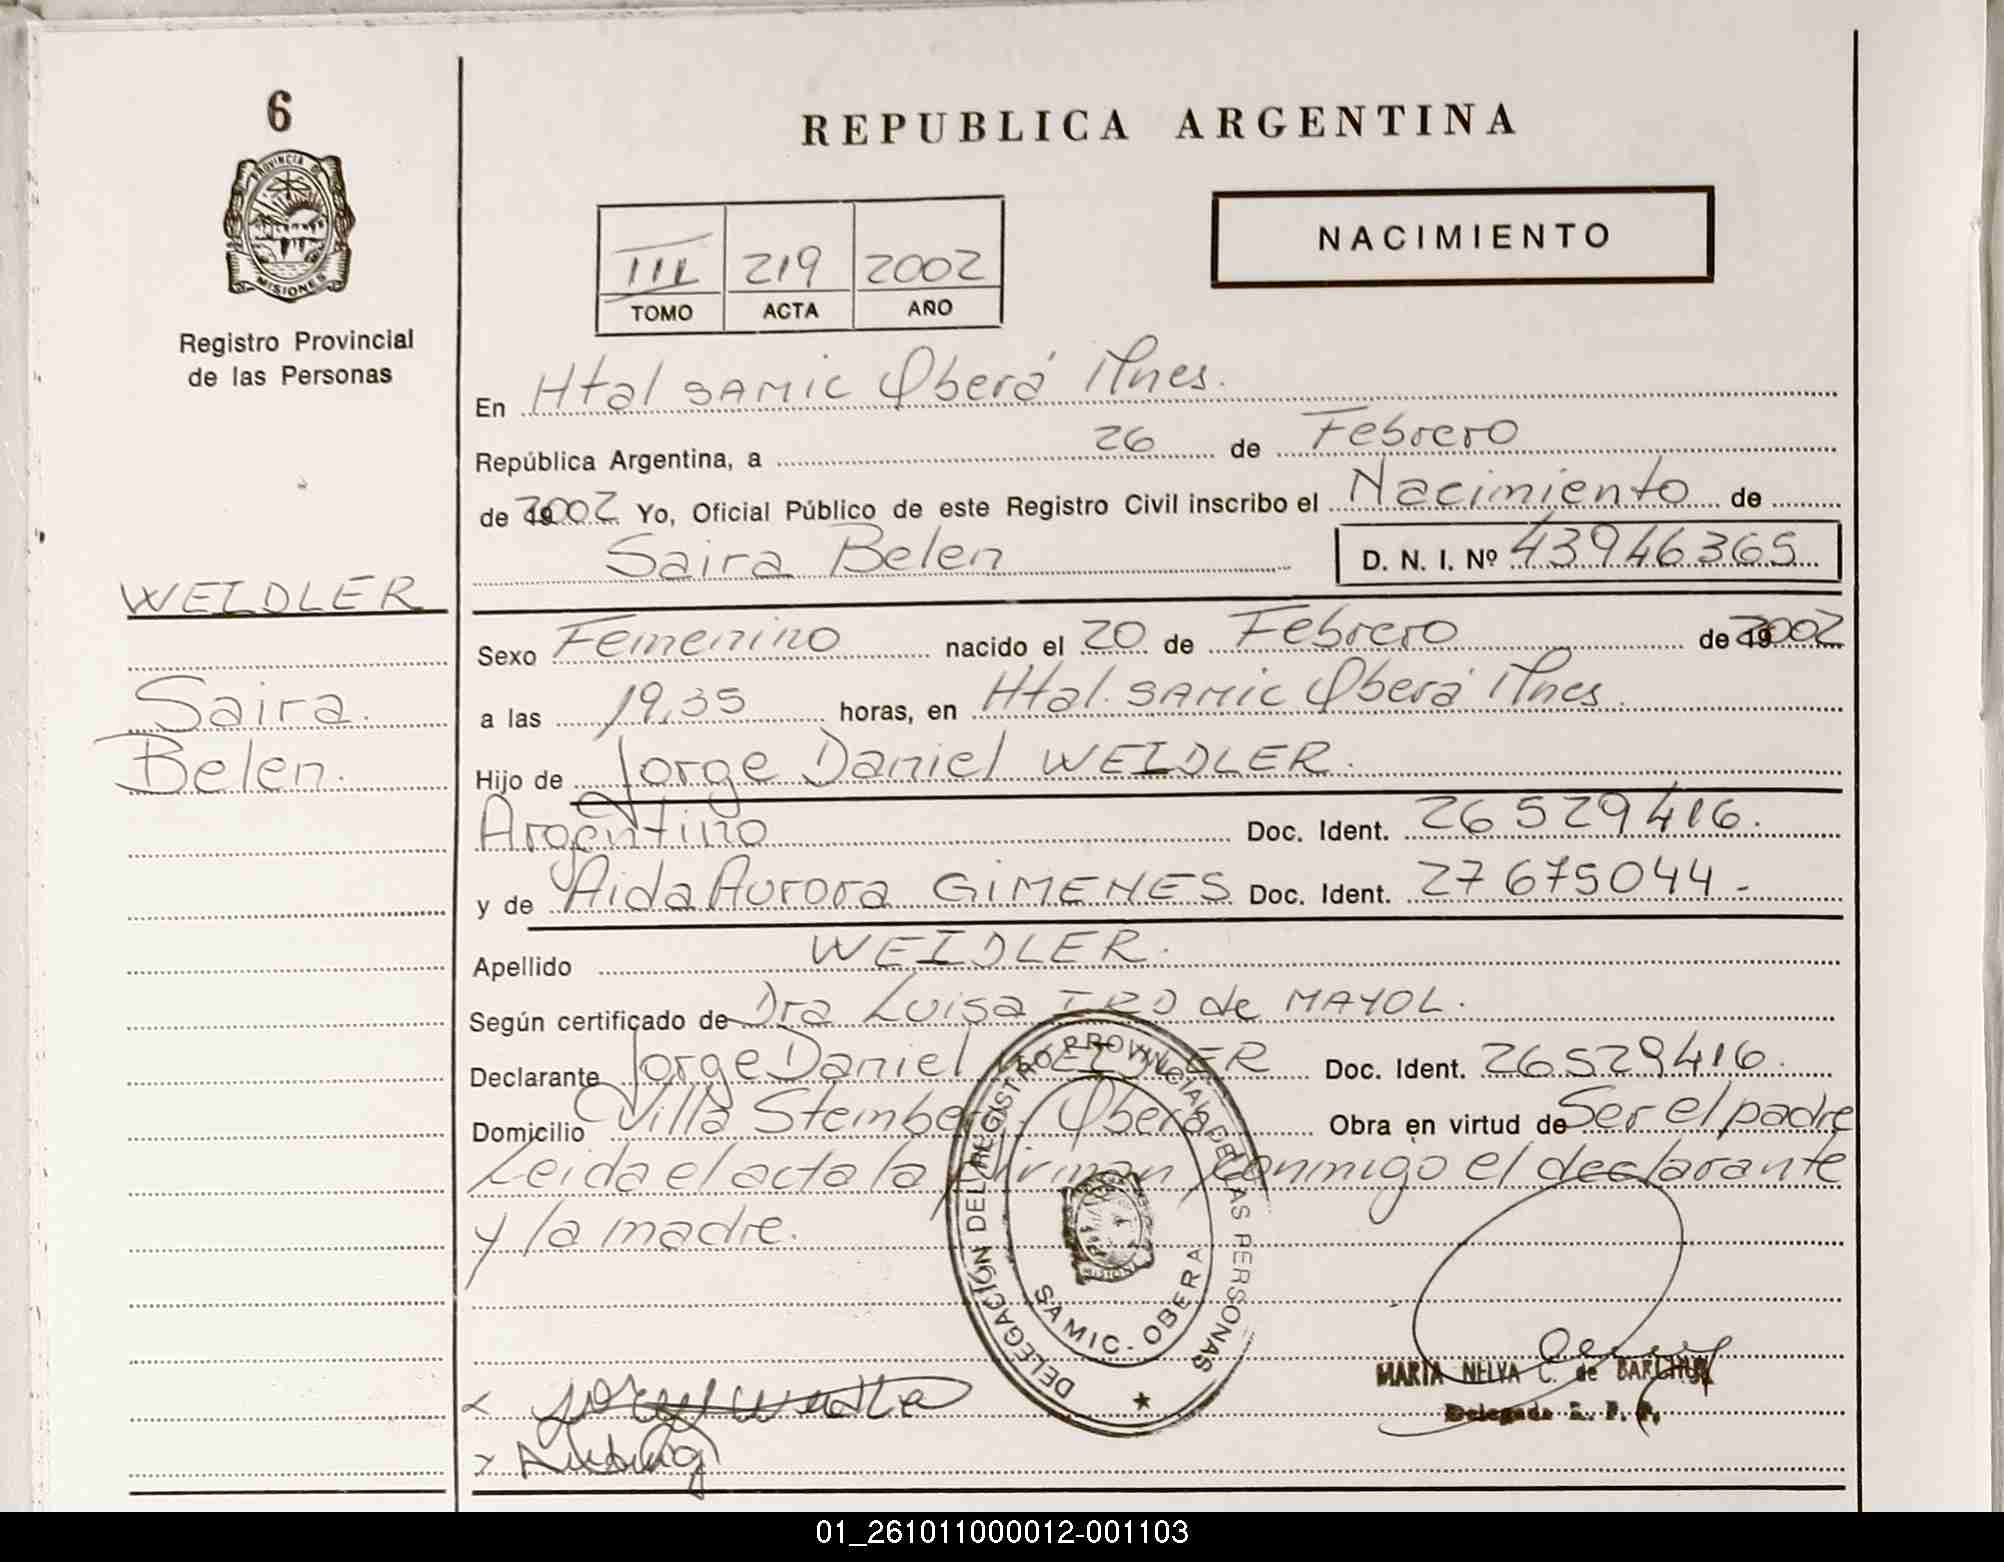 6
PROVINCIA DE
MISIONES
Registro Provincial
de las Personas
WEIDLER
Saira
Belen.
REPUBLICA ARGENTINA
III 219 2002
TOMO ACTA AÑO
NACIMIENTO
En Htal SAMIC Oberá Mnes.
República Argentina, a 26 de Febrero
de 2002 Yo, Oficial Público de este Registro Civil inscribo el Nacimiento de
Saira Belen D. N. I. Nº 43946365
Sexo Femenino nacido el 20 de Febrero de 2002
a las 19,35 horas, en Htal. SAMIC Oberá Mnes.
Hijo de Jorge Daniel WEIDLER.
Argentino Doc. Ident. 26529416.
y de Aida Aurora GIMENES Doc. Ident. 27675044-
Apellido WEIDLER.
Según certificado de Dra Luisa IRO de MAYOL.
Declarante Jorge Daniel WEIDLER Doc. Ident. 26529416.
Domicilio Villa Stemberg Oberá Obra en virtud de Ser el padre
Leida el acta la firman conmigo el declarante
y la madre.
DELEGACIÓN DEL REGISTRO PROVINCIAL DE LAS PERSONAS
MISIONES
SAMIC - OBERA
MARIA NELVA C. de
Delegada R. P. P.
01_261011000012-001103